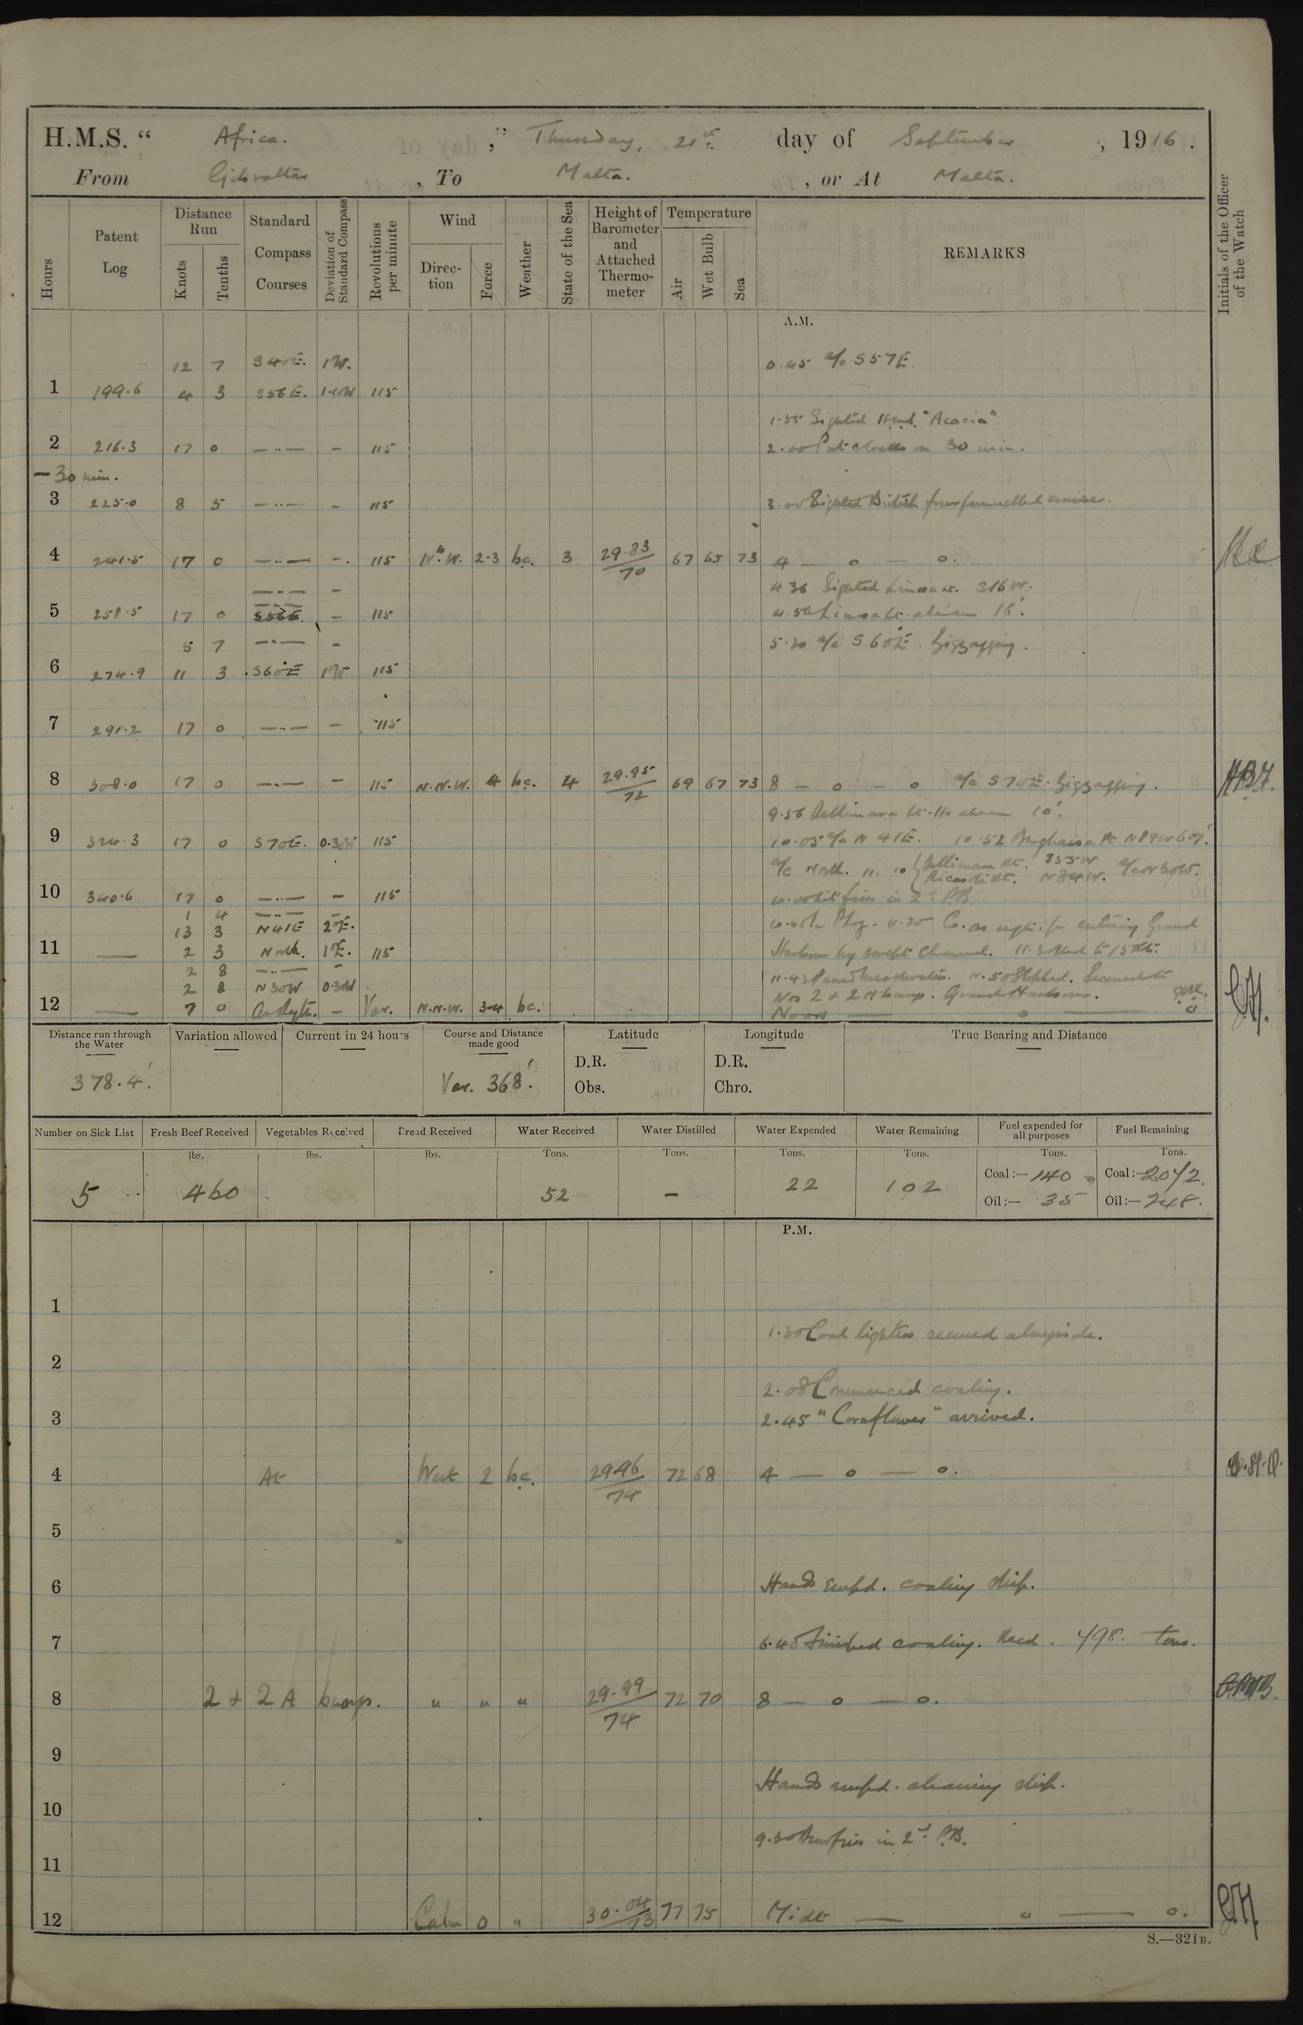 H.M.S. “ Africa. ,” Thursday, 21st day of September , 1916 .
From Gibraltar , To Malta. , or At Malta.
Hours
Patent Log
Distance Run
Knots
Tenths
Standard Compass Courses
Deviation of Standard Compass
Revolutions per minute
Wind
Direction
Force
Weather
State of the Sea
Height of Barometer and Attached Thermometer
Temperature
Air
Wet Bulb
Sea
REMARKS
Initials of the Officer of the Watch
A.M.
12 7 S40E. 1W. 0.45 a/c S57E.
1 199.6 4 3 S56E. 1.10W 115
1.35 Sighted H.M.S. "Acacia"
2 216.3 17 0 — .. — - 115 2.00 Put clocks on 30 min.
- 30 min.
3 225.0 8 5 — .. — - 115 3.00 Sighted British four funnelled cruiser.
4 241.5 17 0 — .. — - 115 N.W. 2-3 bc. 3 29.83/70 67 65 73 4 — o — o.
— .. — - 4.36 Sighted Linosa S16W.
5 258.5 17 0 - 115 4.56 Linosa Lt. abeam 16'.
5 7 — .. — - 5.20 a/c S60E. Zigzagging.
6 274.9 11 3 S60E 115
7 291.2 17 0 — .. — - 115
8 308.0 17 0 — .. — - 115 N.N.W. 4 bc. 4 29.95/72 69 67 73 8 — o — o a/c S70E. Zigzagging.
9.56 Dellimara Lt. Ho abeam 10'.
9 324.3 17 0 S70E. 0.30W 115 10.05 a/c N41E. 10.52 Benghaisa Pt N89W 6.7'.
a/c North. 11.10 { Dellimara Lt. S55W
Ricasoli Lt. N84W. a/c N30W.
10 340.6 17 0 — .. — - 115 10.00 lit fires in 2nd P.B.
1 4 — .. —
13 3 N41E 2E. 11.25 Co. as reqte. for entering Grand
11 — 2 3 North. 1E. 115 Harbour by swept channel.
2 8 — .. — - 11.43 Passed breakwater. 11.50 Stopped. Secured to
2 8 N30W 0.30W Nos 2 & 2A buoys. Grand Harbour.
12 — 7 0 As reqte. - Var. N.N.W. 3-4 bc. Noon — o — o
Distance run through the Water
378.4'.
Variation allowed
Current in 24 hours
Course and Distance made good
Var. 368'.
Latitude
D.R.
Obs.
Longitude
D.R.
Chro.
True Bearing and Distance
Number on Sick List
5
Fresh Beef Received
lbs.
460
Vegetables Received
lbs.
Bread Received
lbs.
Water Received
Tons.
52
Water Distilled
Tons.
-
Water Expended
Tons.
22
Water Remaining
Tons.
102
Fuel expended for all purposes
Tons.
Coal:— 140
Oil:— 35
Fuel Remaining
Tons.
Coal:— 2072.
Oil:— 248.
P.M.
1
1.30 Coal lighters secured alongside.
2
2.08 Commenced coaling.
3 2.45 "Cornflower" arrived.
4 At West 2 bc. 29.96/74 72 68 4 — o — o.
5
6 Hands empd. coaling ship.
7 6.40 Finished coaling. Recd. 498 tons.
8 2 & 2A buoys. " " " 29.99/74 72 70 8 — o — o.
9
Hands empd. cleaning ship.
10
9.30 Drew fires in 2nd P.B.
11
12 Calm 0 " 30.04/73 77 75 Midt — o — o.
S.—321B.